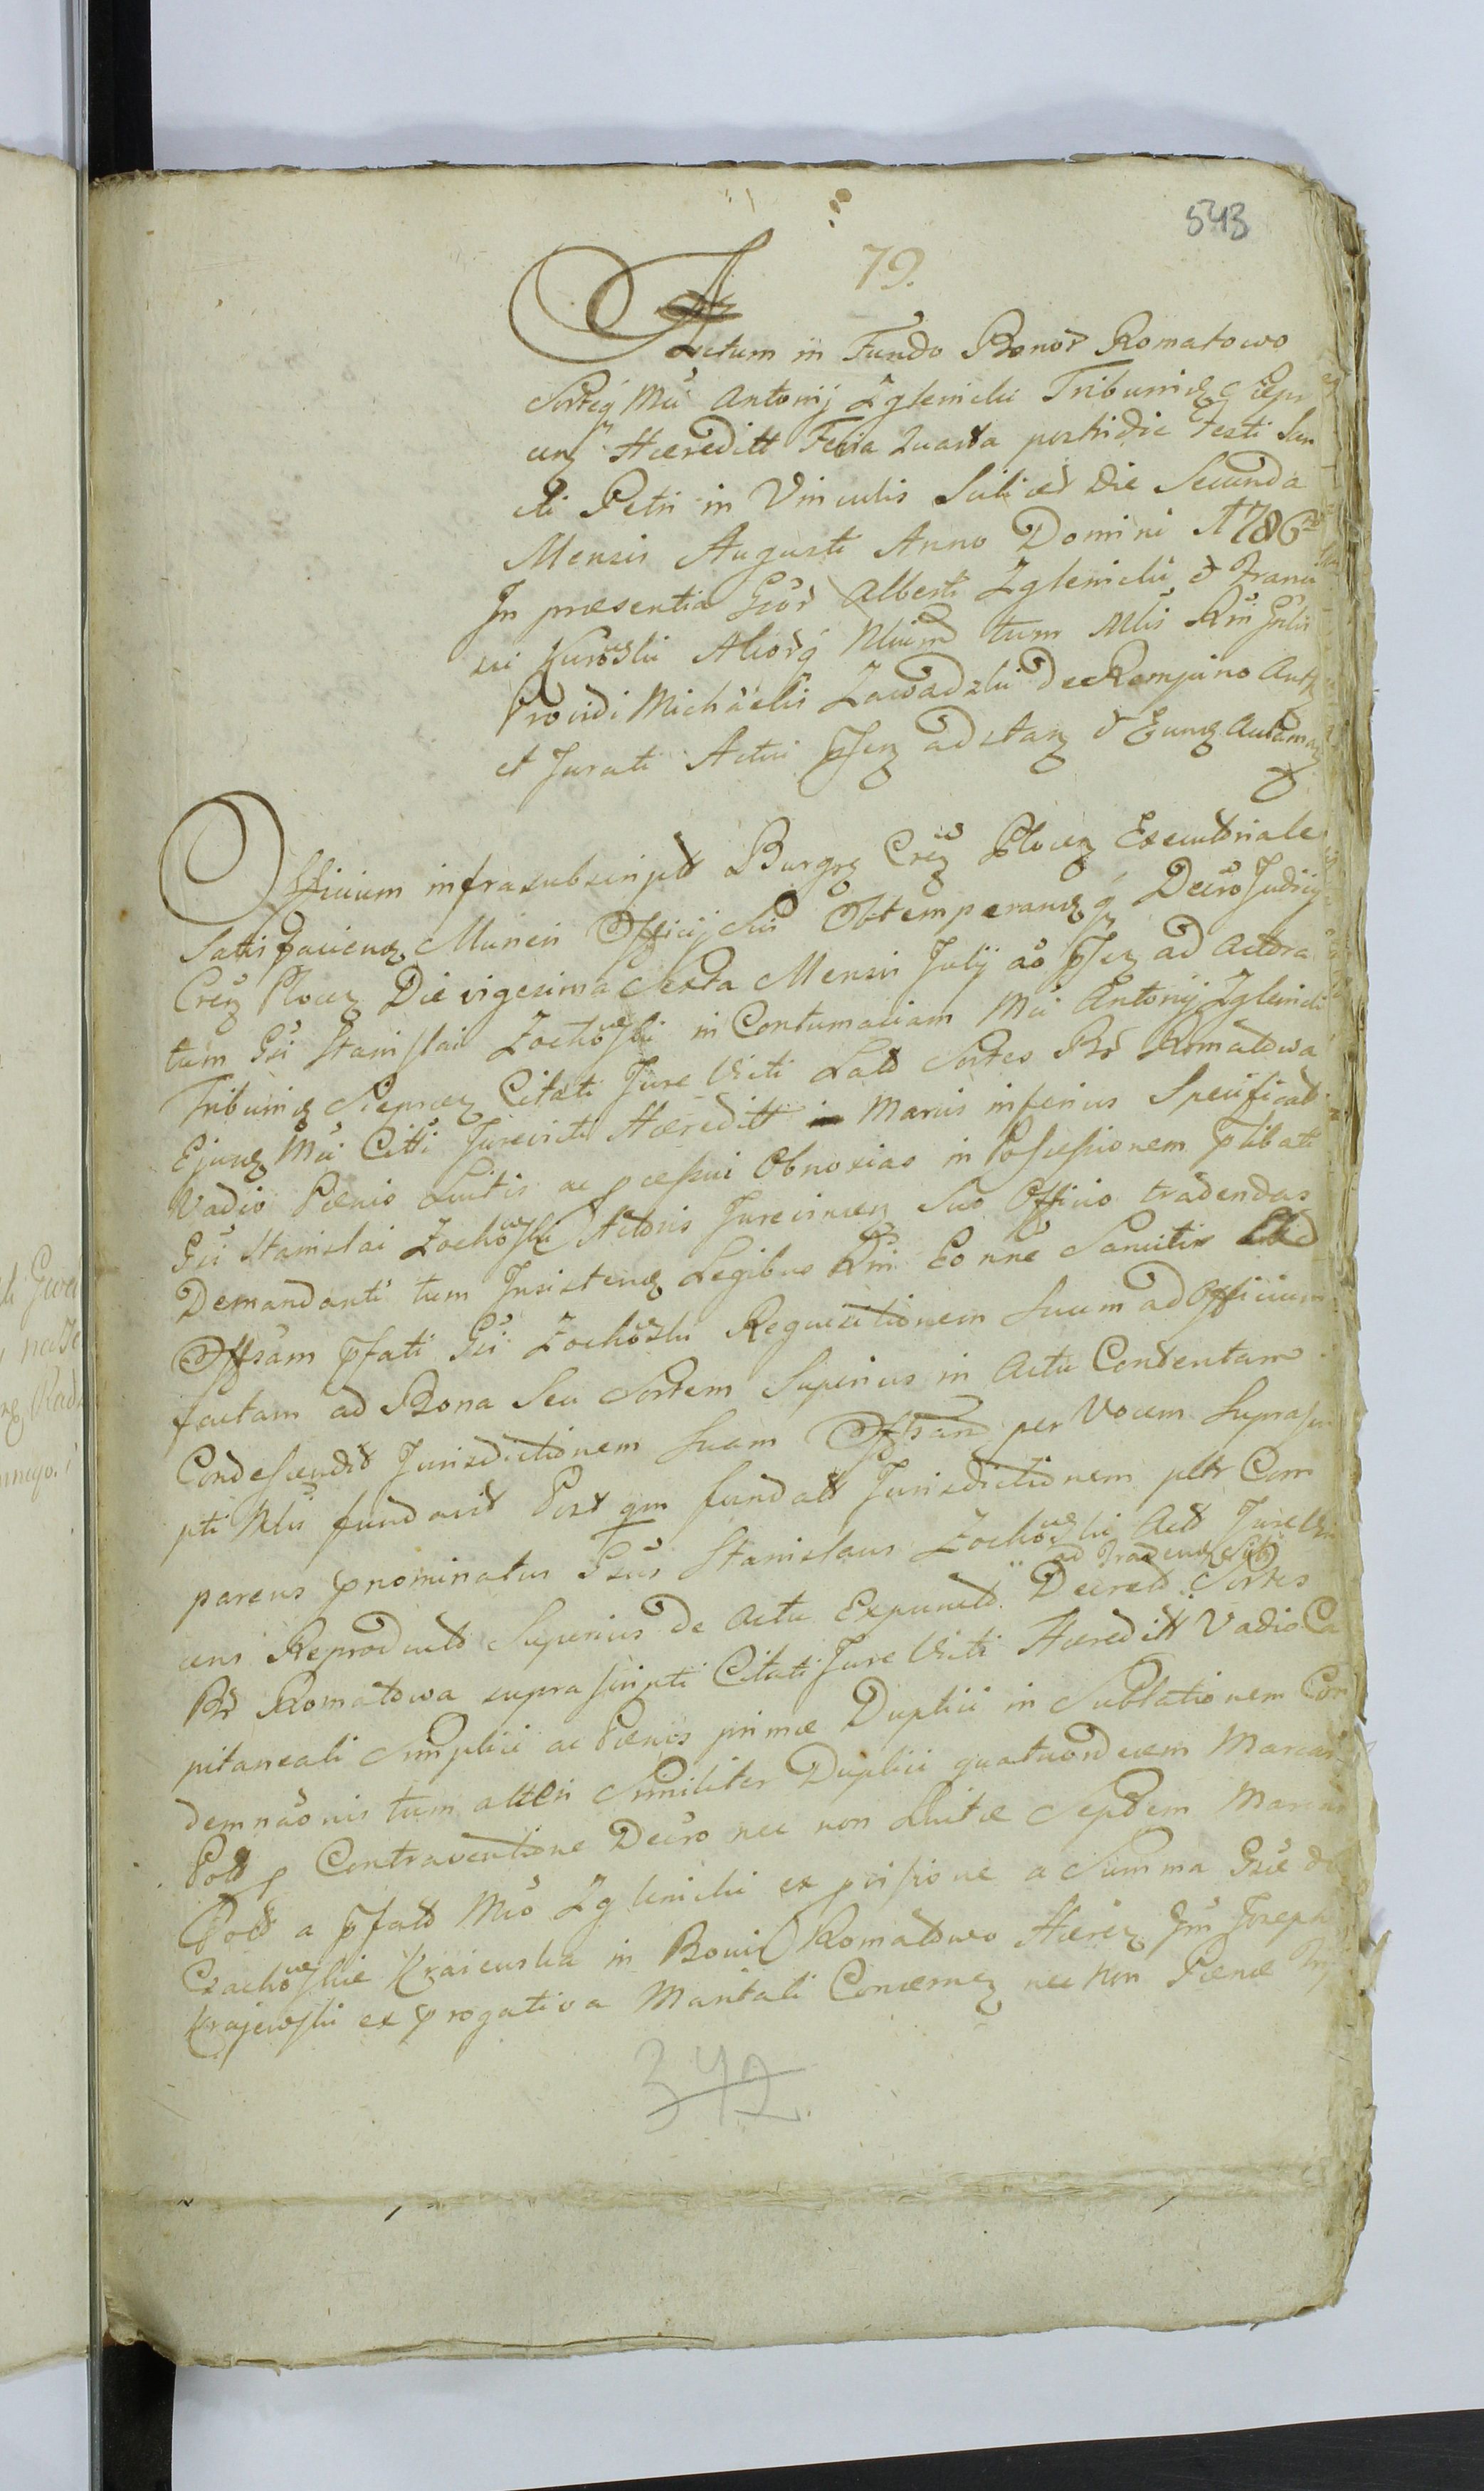 543
79.
Actum in Fundo Bonor Romatowo
Sortisq Mci Antonij Zglenicki Tribunidę Siepr
cenę Hereditt Feria Quarta postridie Festi San
cti Petri in Vinculis scilicet Die Secunda
Mensis Augusti Anno Domini 1786to
In præsentia Gsör Alberti Zglenicki et Franci
sci Kurowski Aliorq Nliumd tum Mlis Rni Gnlis
Providi Michaelis Zawadzki de Rempino Aut
et Jurati Actui pñtę adstanę et Eunę Authoman
Officium infrasubscript Burgę Cręę Plocenę Executoriale
Satisfaciendę Muneri Officij Sui Obtemperandę q Decro Judicij
Cręę Plocenę Die vigesima Sexta Mensis Julij ao pñtę ad Actora
tum Gsi Stanislai Zochowski in Contumaciam Mci Antonij Zglenicki
Tribunidę Siepręę Citati Jure Victi Lato Sortes Br Romatowa
Ejusdę Mci Citti Jurevicti Hereditt Mariis inferius Specificat
Vadio Pænis Luitis ac ... Obnoxias in Possessionem plibati
Gsi Stanislai Zochowski Actoris Jurevincenę Suo Officio tradendas
Demandanti tum Insistendę Legibus Rni Eo nne Sancitis ad
Offosam pfati Gsi Zochowski Requisitionem Suum ad Officium
factam ad Bona Seu Sortem Superius in Actu Contentam
Condescendit Jurisdictionem Suam Offosam per Vocem Suprascri
pti Mlis fundavit Post qm fundatt Jurisdictionem pltr Com
parens pnominatus Gsus Stanislaus Zochowski Act Jure Vin
ad tradendę Sibi
cens Reproducto Superius de Actu Expuncto Decreto Sortes
Br Romatowa suprascripti Citati Jure Victi Hereditt Vadio Ca
pitaneali Simplici ac Pænis primæ Duplici in Sublationem Con
demnãonis tum alteri Similiter Duplici quatuordecem Marcar
Poll p Contraventione Decro nec non Luitæ Septem Marcar
Poll a pfato Mco Zglenicki ex ... a Summa Gsæ de
Czachowskie Kraiewska in Bonis Romatowo Herię Gni Joseph
Krajewski ex progativa Maritali Concernę nec non Pænæ
342